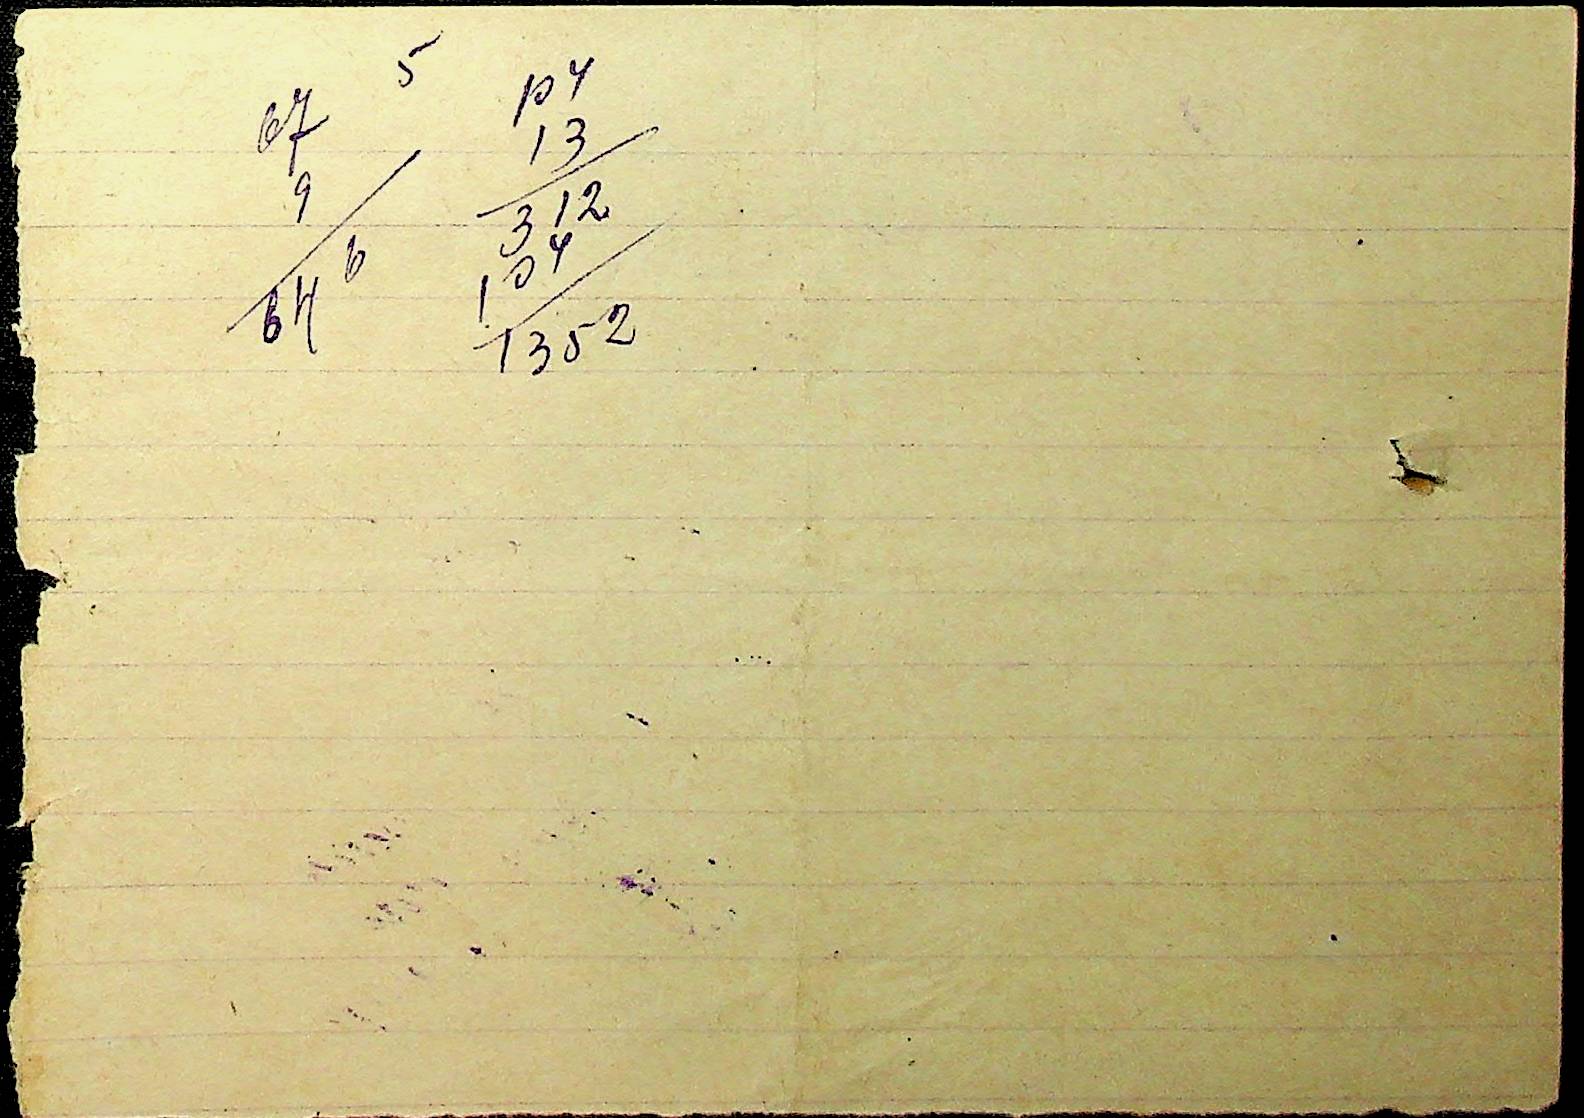 5
67
9
646
104
13
312
104
1352